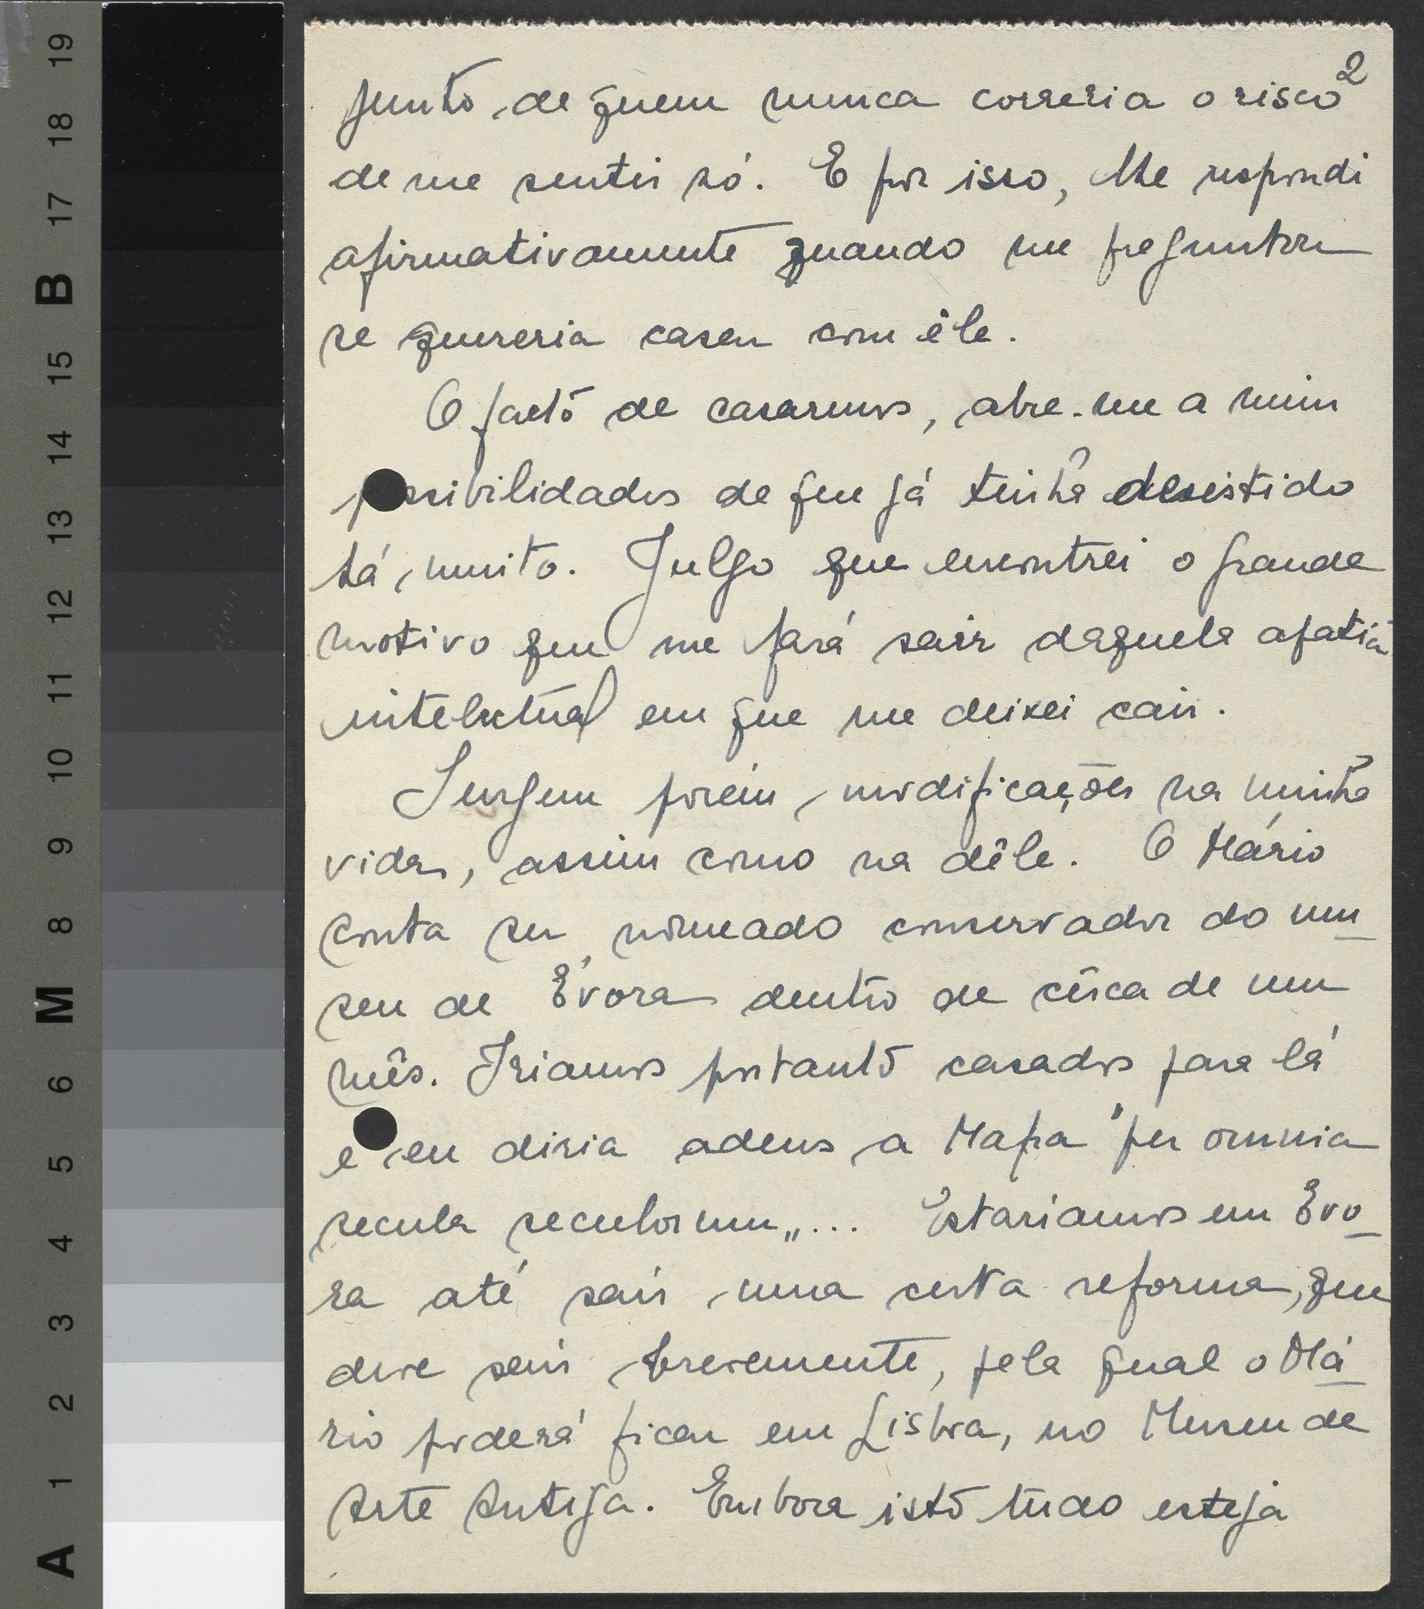 2
junto de quem nunca correria o risco
de me sentir só. E por isso, lhe respondi
afirmativamente quando me preguntou
se quereria casar com êle.
O facto de casarmos, abre-me a mim
possibilidades de que já tinha desistido
há muito. Julgo que encontrei o grande
motivo que me fará sair daquela apatia
intelectual em que me deixei cair.
Surgem porém, modificações na minha
vida, assim como na dêle. O Mário
conta ser nomeado conservador do mu-
seu de Évora dentro de cêrca de um
mês. Iriamos portanto casados para lá
e eu diria adeus a Mafra "per omnia
secula seculorum„... Estariamos em Évo-
ra até sair uma certa reforma, que
deve sair brevemente, pela qual o Má-
rio poderá ficar em Lisboa, no Museu de
Arte Antiga. Embora isto tudo esteja
19
18
17
B
15
14
13
12
11
10
9
8
M
6
5
4
3
2
1
A